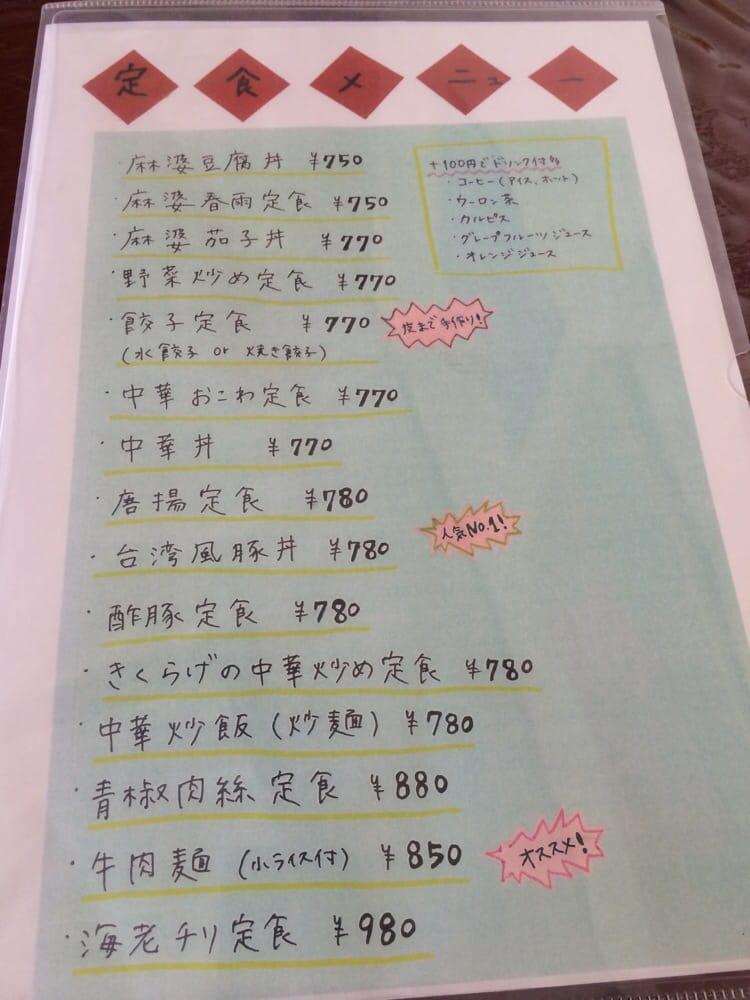 定食メニュー
・麻婆豆腐丼 ¥750
・麻婆春雨定食 ¥750
・麻婆茄子丼 ¥770
・野菜炒め定食 ¥770
・餃子定食 ¥770
皮まで手作り!
(水餃子 or 焼き餃子)
・中華おこわ定食 ¥770
・中華丼 ¥770
・唐揚定食 ¥780
人気No.1!
・台湾風豚丼 ¥780
・酢豚定食 ¥780
・きくらげの中華炒め定食 ¥780
・中華炒飯(炒麺) ¥780
・青椒肉絲定食 ¥880
・牛肉麺(小ライス付) ¥850
オススメ!
・海老チリ定食 ¥980
+100円でドリンク付
・コーヒー(アイス、ホット)
・ウーロン茶
・カルピス
・グレープフルーツジュース
・オレンジジュース